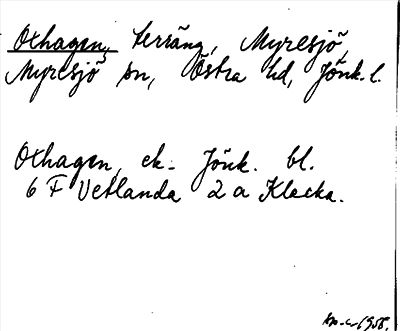 Oxhagen, terräng, Myresjö,
Myresjö sn, Östra hd, Jönk. l.
Oxhagen, ek. Jönk. bl.
6 F Vetlanda 2 a Klacka.
1955.